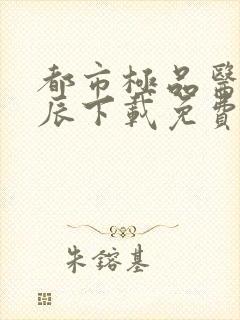 都市極品醫
辰下載免費
朱鎔基